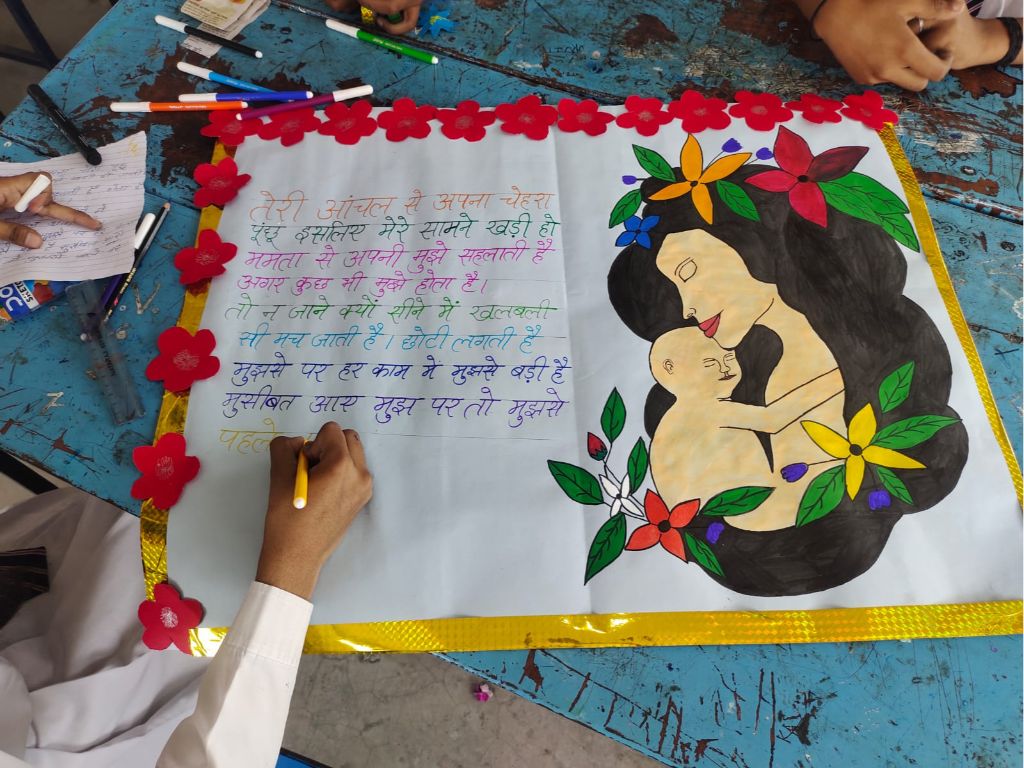 तेरी आंचल से अपना चेहरा
पूंछू इसलिए मेरे सामने खड़ी हो
ममता से अपनी मुझे सहलाती है
अगर कुछ भी मुझे होता है।
तो न जाने क्यों सीने में खलबली
सी मच जाती है। छोटी लगती है
मुझसे पर हर काम में मुझसे बड़ी है
मुसीबत आए मुझ पर तो मुझसे
पहले